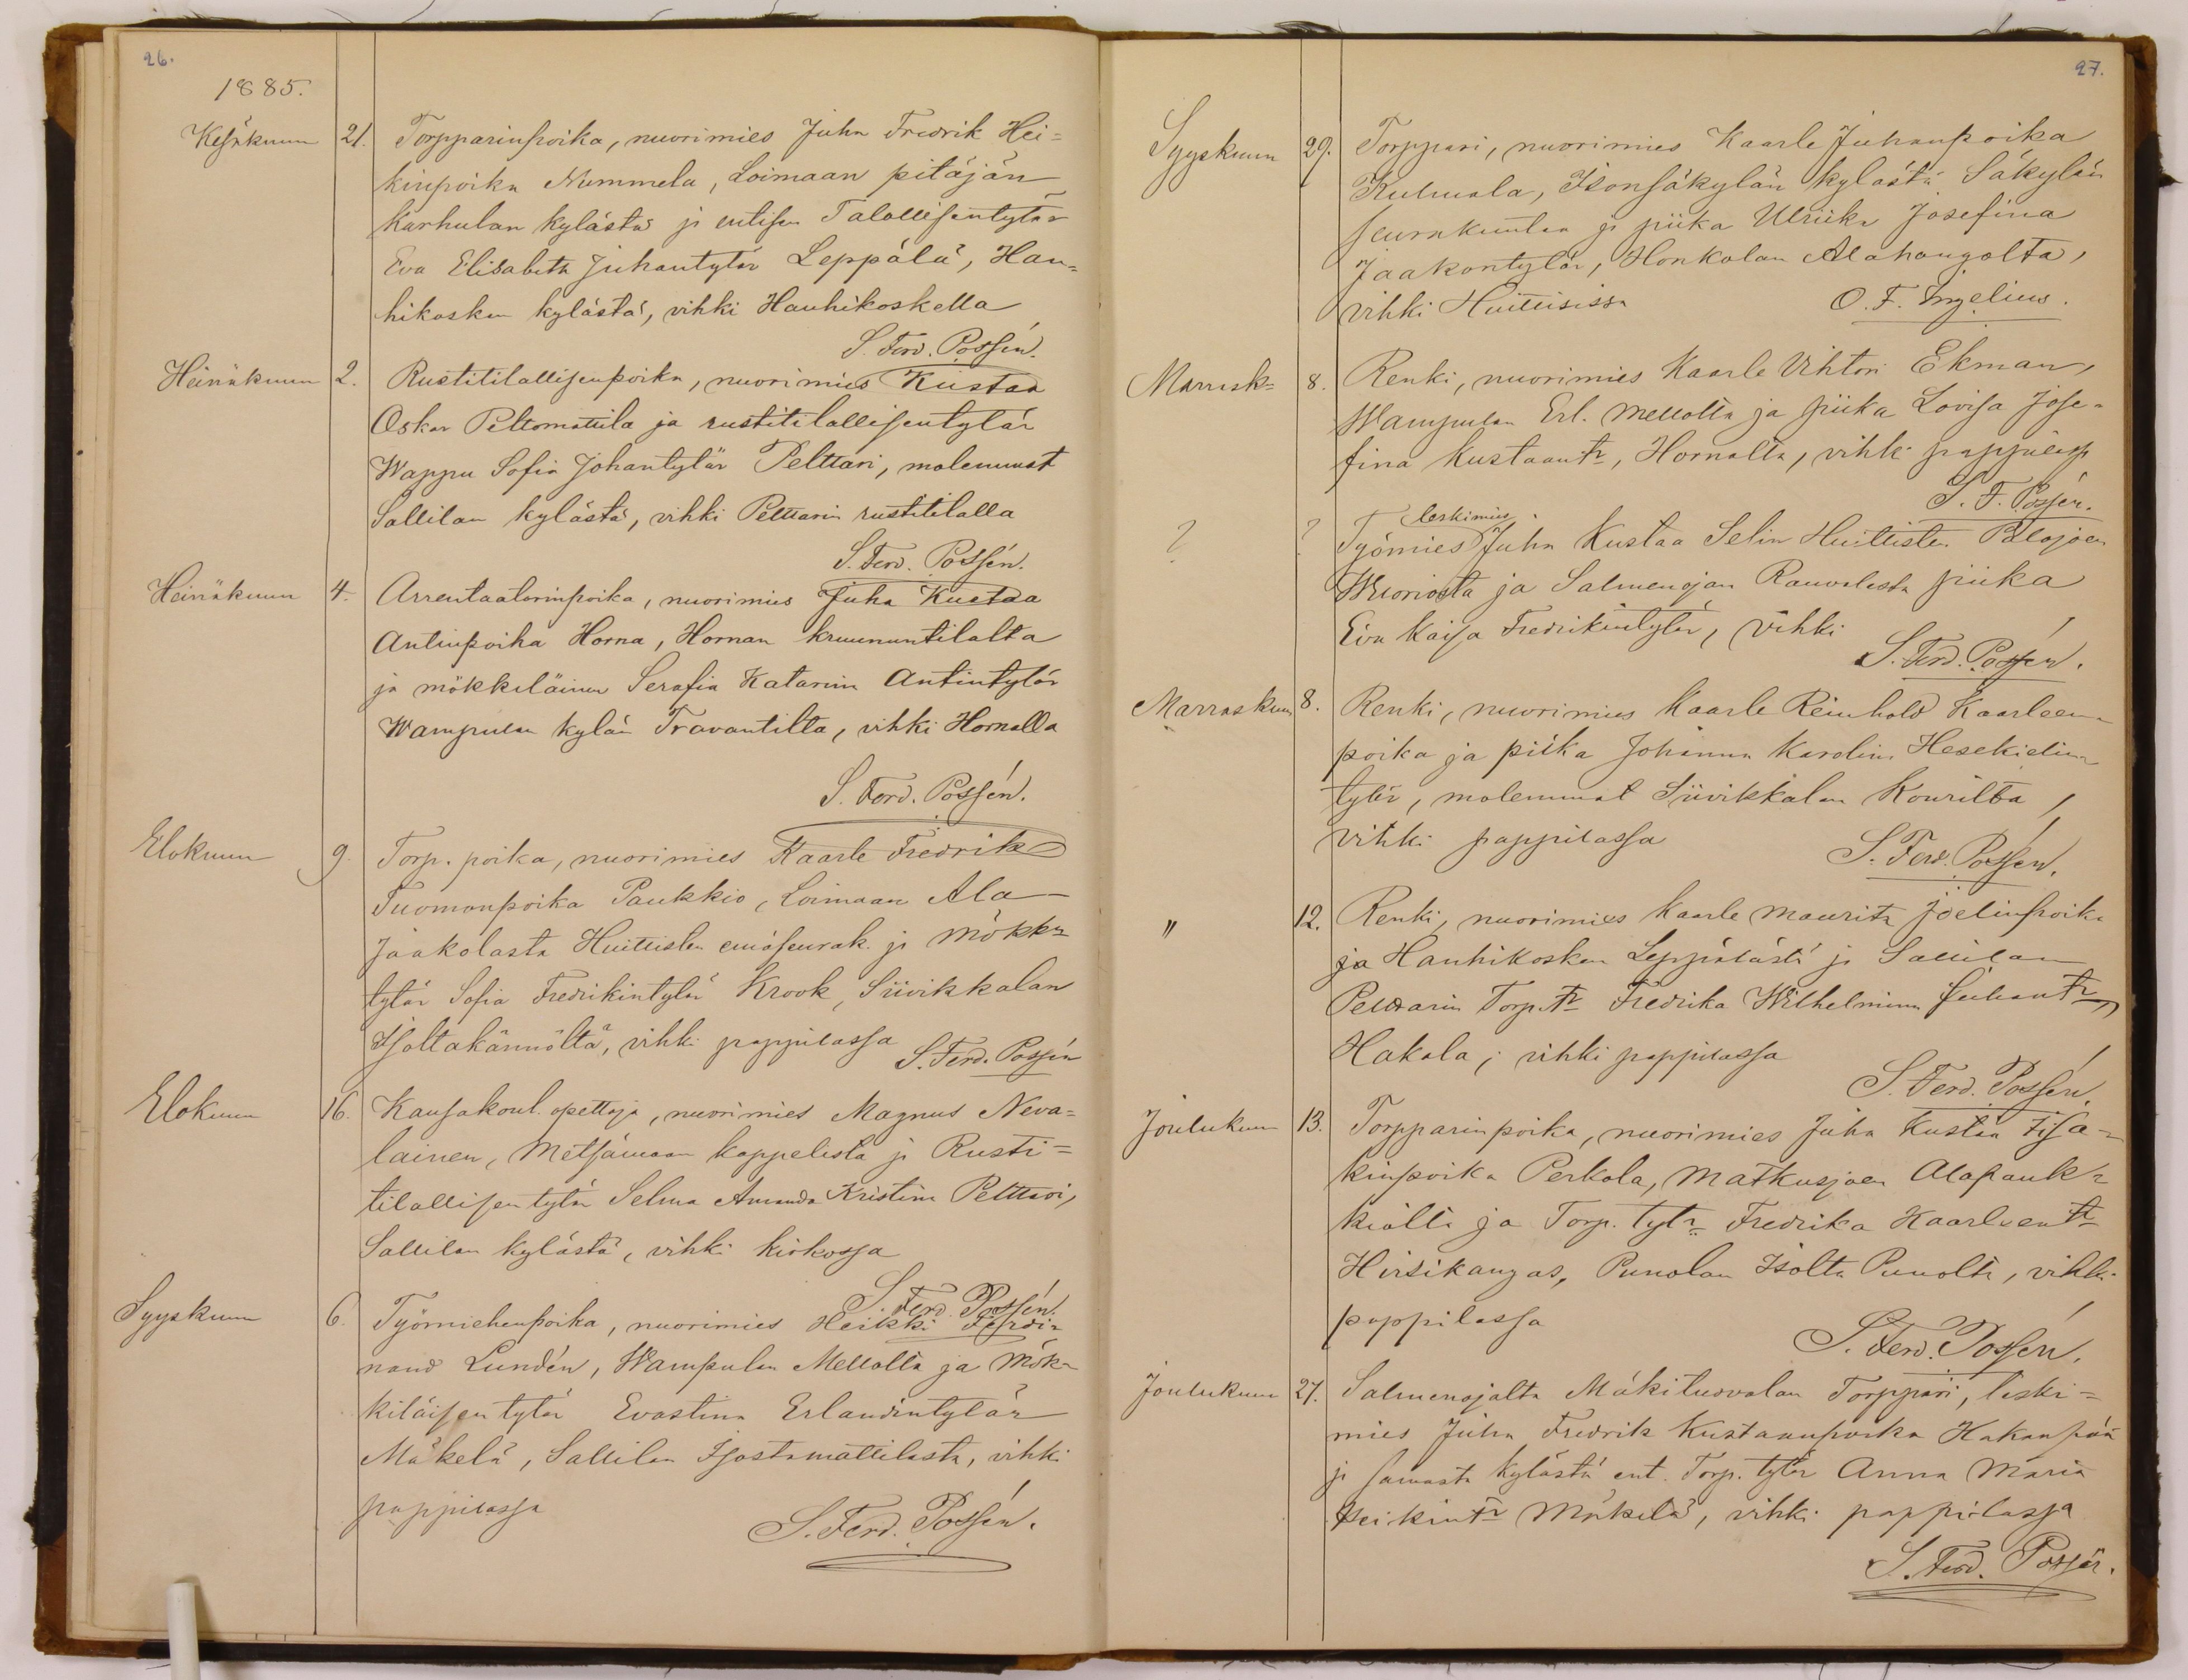 26.
1885.
Kesäkuun 21. Torpparinpoika, nuorimies Juha Fredrik Hei=
kinpoika Nummela, Loimaan pitäjän
Karhulan kylästä ja entisen Talollisentytär
Eva Elisabeth Juhantytär Leppälä, Han=
hikosken kylästä, vihki Hanhikoskella
S. Ferd. Possén.
Heinäkuun 2. Rustitilallisenpoika, nuorimies Kustaa
Oskar Peltomattila ja rustitilallisentytär
Wappu Sofia Johantytär Pelttari, molemmat
Sallilan kylästä, vihki Pelttarin rustitilalla
S. Ferd. Possén.
Heinäkuun 4. Arrentaatorinpoika, nuorimies Juha Kustaa
Antinpoika Horna, Hornan kruununtilalta
ja mökkiläinen Serafia Katarina Antintytär
Wampulan kylän Travantilta, vihki Hornalla
S. Ferd. Possén.
Elokuun 9. Torp. poika, nuorimies Kaarle Fredrik
Tuomonpoika Paukkio, Loimaan Ala
Jaakolasta Huittisten emäseurak. ja Mökk=
tytär Sofia Fredrikintytär Krook, Siivikkalan
Isoltakännöltä, vihki pappilassa S. Ferd. Possén
Elokuun 16. Kansakoul. opettaja, nuorimies Magnus Neva=
lainen, Metsämaan kappelista ja Rusti=
tilallisentytär Selma Amanda Kristina Pelttari,
Sallilan kylästä, vihki kirkossa
S. Ferd. Possén.
Syyskuun 6. Työmiehenpoika, nuorimies Heikki Ferdi=
nand Lundén, Wampulan Mellolta ja Mök=
kiläisentytär Evastina Erlandintytär
Mäkelä, Sallilan Isostamattilasta, vihki
pappilassa S. Ferd. Possén.
27.
Syyskuun 29. Torppari, nuorimies Kaarle Juhanpoika
Kulmala, Isonsäkylän kylästä Säkylän
seurakuntaa ja piika Ulriika Josefina
Jaakontytär, Honkolan Alahongolta,
vihki Huittisissa O. F. Ingelius.
Marrask= 8. Renki, nuorimies Kaarle Vihtori Ekman,
Wampulan Erl. Mellolta ja piika Lovisa Jose=
fina Kustaantr, Hornalta, vihki pappilassa
S. F. Possén.
? ? Työmies leskimies Juha Kustaa Selin Huittisten Palojoen
Wuoriosta ja Salmenojan Rauvolasta piika
Eva Kaisa Fredrikintytär, vihki
S. Ferd. Possén.
Marraskuun 8. Renki, nuorimies Kaarle Reinhold Kaarleen=
poika ja piika Johanna Karolina Hesekielin=
tytär, molemmat Siivikkalan Kourilta,
vihki pappilassa S. Ferd. Possén.
" 12. Renki, nuorimies Kaarle Mauritz Joelinpoika
ja Hanhikosken Leppälästä ja Sallilan
Pelttarin Torp.tr Fredrika Wilhelmina Juhantr
Hakala, vihki pappilassa
S. Ferd. Possén.
Joulukuun 13. Torpparinpoika, nuorimies Juha Kustaa Iisa=
kinpoika Perkola, Matkusjoen Alapauk=
kiolta ja Torp. tytr Fredrika Kaarleentr
Hirsikangas, Punolan Isolta Punolta, vihki
pappilassa
S. Ferd. Possén.
Joulukuun 27. Salmenojalta Mäkituovolan Torppari, leski=
mies Juha Fredrik Kustaanpoika Hakanpää
ja samasta kylästä ent. Torp. tytär Anna Maria
Heikintr Mäkelä, vihki pappilassa
S. Ferd. Possén.